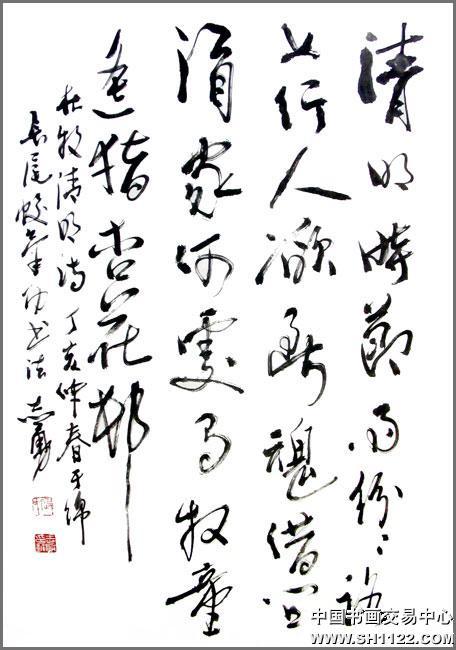 清明时節雨紛〻路
上行人欲断魂借问
酒家何處有牧童
遥指杏花邨
杜牧清明诗 丁亥仲春于绵
長尾 书法 志勇
中国书画交易中心
www.SH1122.com